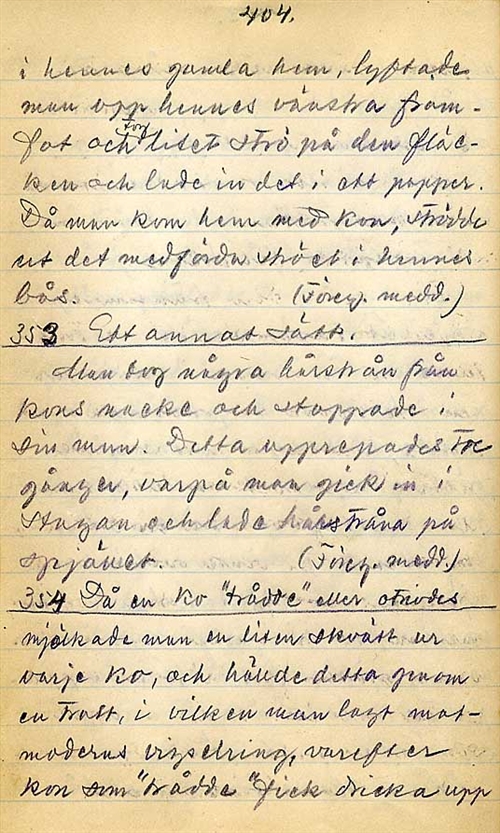 404.
i hennes gamla hem, lyftade
man opp hennes vänstra fram-
fot och tog litet strö på den fläc-
ken och lade in det i ett papper.
Då man kom hem med kon, strödde
ut det medförda ströet i hennes
bås. (Föreg. medd.)
353 Ett annat sätt.
Man tog några hårstrån från
kons nacke och stoppade i
sin mun. Detta upprepades tre
gånger, varpå man gick in i
stugan och lade hårstråna på
spjället. (Föreg. medd.)
354 Då en ko "trådde" eller
mjölkade man en liten skvätt ur
varje ko, och hällde detta genom
en tratt, i vilken man lagt mat-
moderns vigselring, varefter
kon som "trådde" fick dricka upp